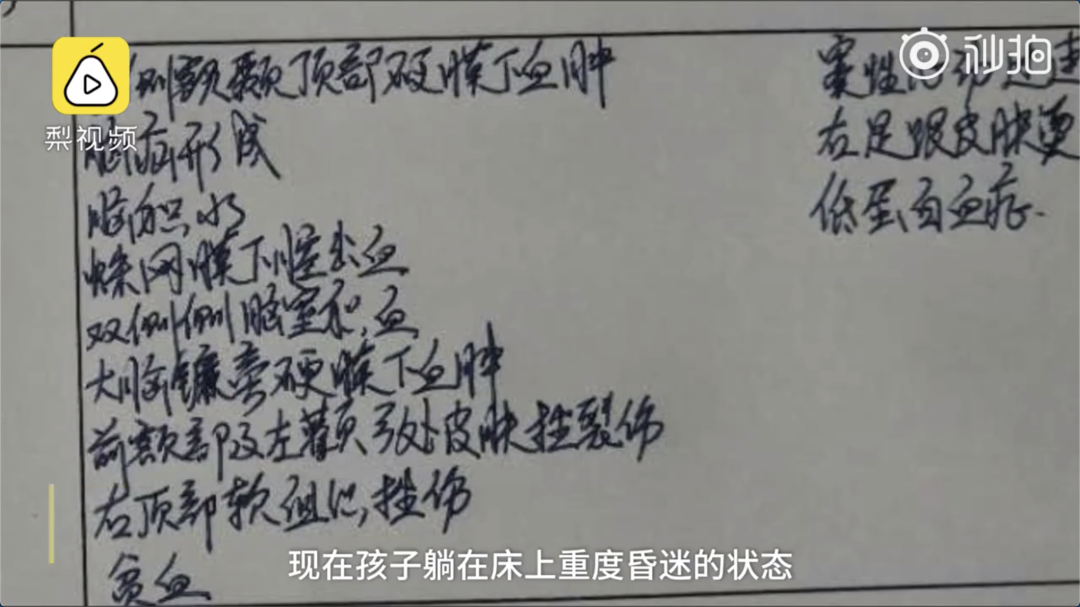 侧额颞顶部硬膜下血肿
脑疝形成
脑积水
蛛网膜下腔出血
双侧侧脑室积血
大脑镰旁硬膜下血肿
前额部及左颧弓处皮肤挫裂伤
右顶部软组织挫伤
贫血
窦性心动过速
右足跟皮肤
低蛋白血症.
梨视频
秒拍
现在孩子躺在床上重度昏迷的状态